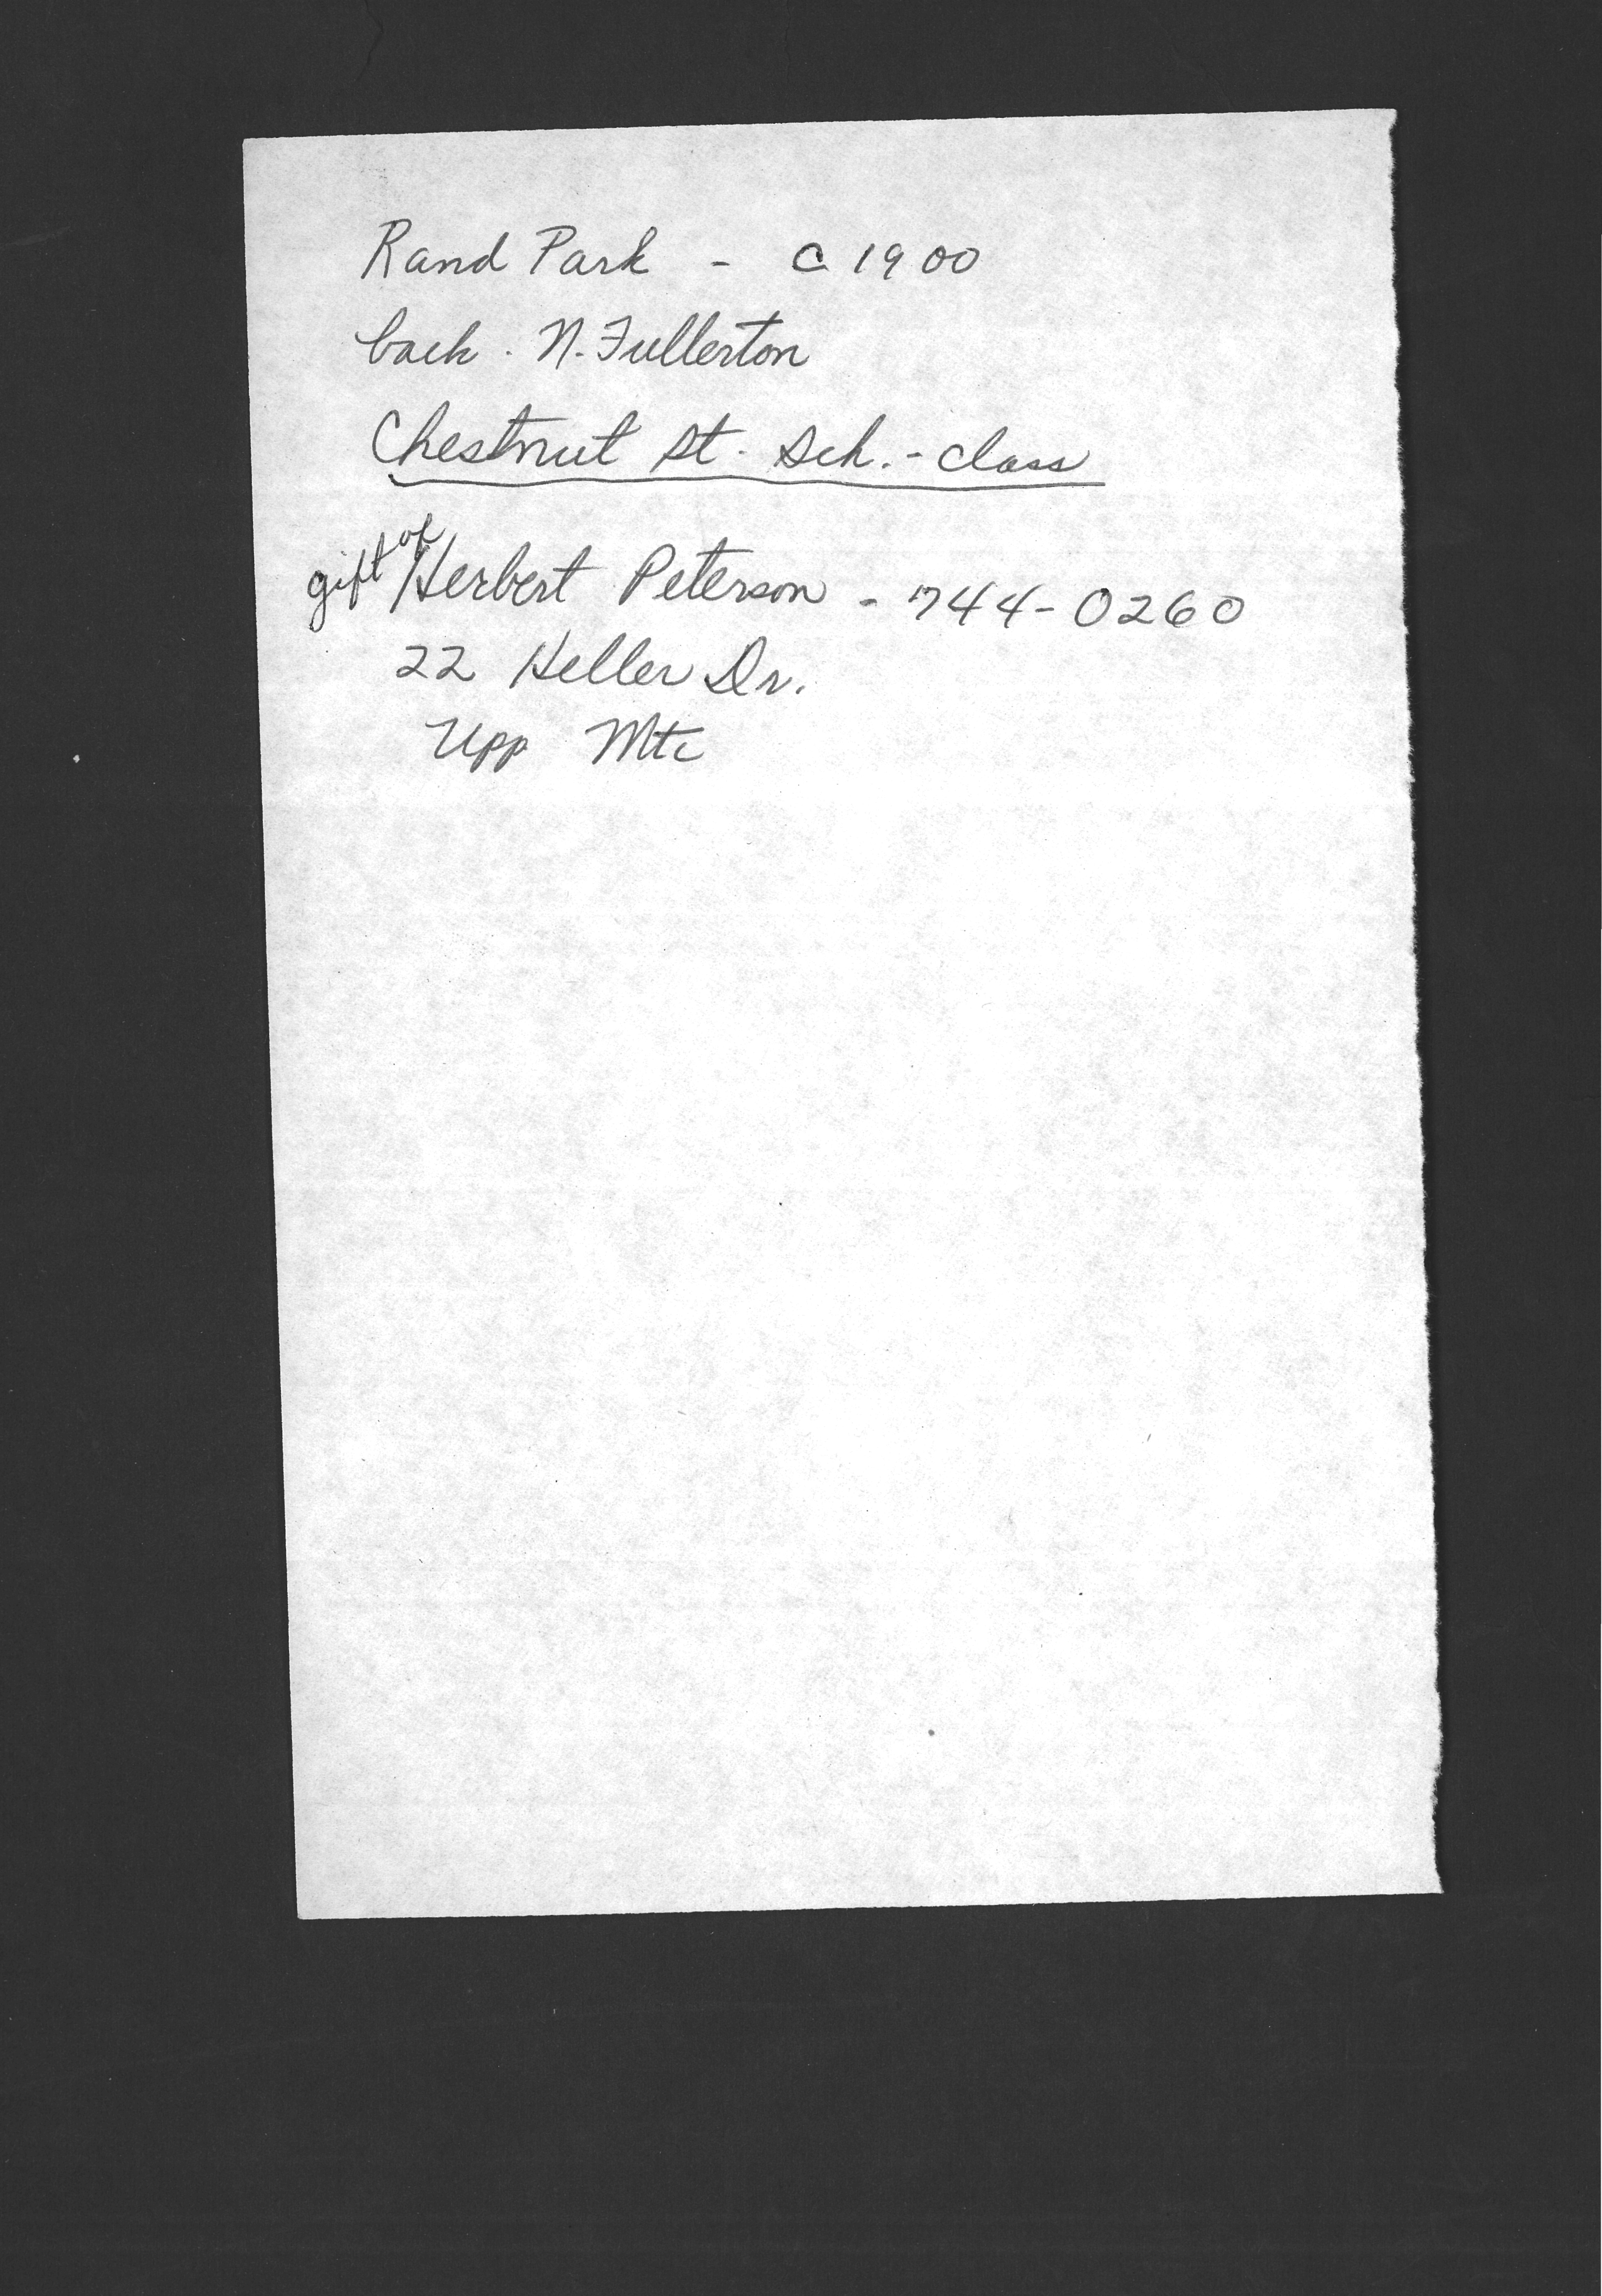 Rand Park - c 1900
back. N. Fullerton
Chestnut St. Sch. - class
gift of Herbert Peterson - 744-0260
22 Heller Dr.
Upp Mtc